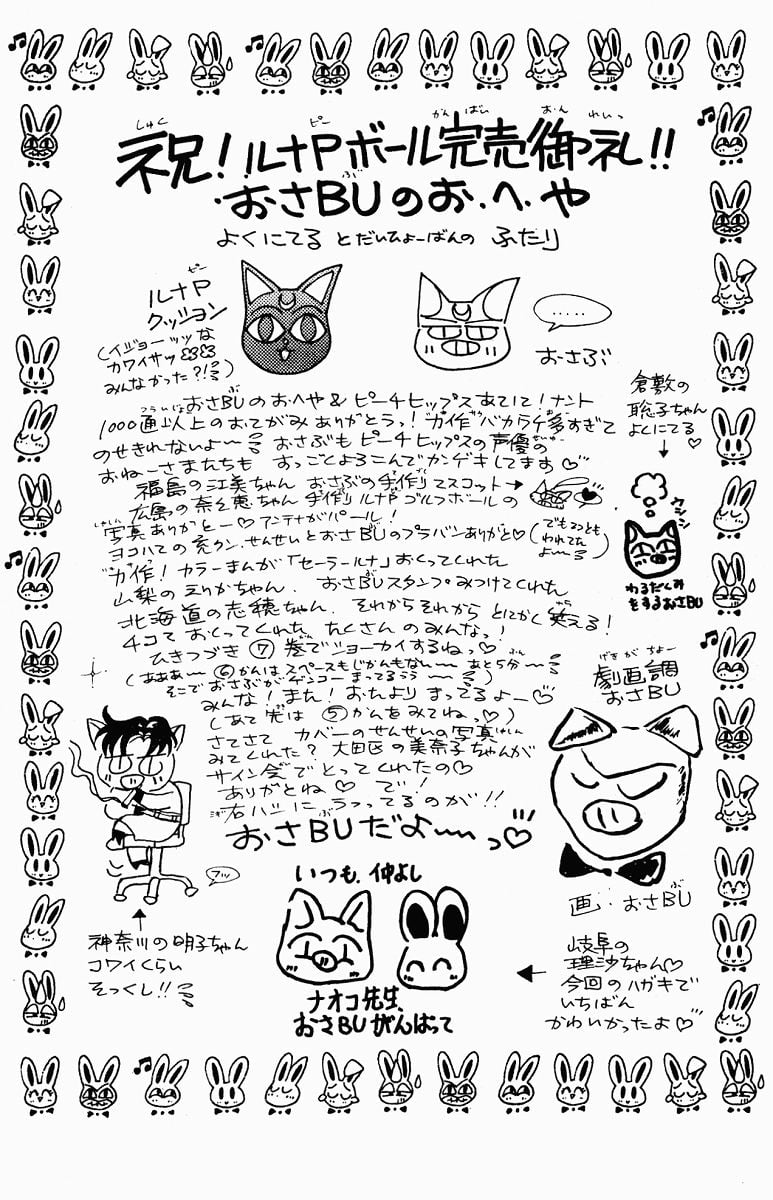 祝!ルナPボール完売御礼!!
おさBUのお.へ.や
よくにてる とだいひょーばんの ふたり
ルナP
クッション
(イジョーッッな
カワイサッ
みんなかった?!)
.....
おさぶ
倉敷の
聡子ちゃん
よくにてる
おさBUのおへや&ピーチヒップスあてに!ナント
1000通以上のおてがみありがとうっ!力作バカラケ多すぎて
のせきれないよ〜 おさぶもピーチヒップスの声優の
おねーさまたちも おっごくよろこんでカンゲキしてます♡
福島の江美ちゃん おさぶの手作りマスコット→
広島の奈々恵ちゃん 手作りルナPゴルフボールの
写真ありがとー♡アンテナがパール!
ヨコハマの充クン、せんせいとおさBUのプラバンありがと♡
(でもココとも
われてた
よ〜)
力作!カラーまんが「セーラールナ」おくってくれた
山梨のえりかちゃん、おさBUスタンプみつけてくれた
北海道の志穂ちゃん、それからそれから とにかく笑える!
チコておくってくれた たくさんのみんなっ!
ひきつづき⑦巻でショーカイするねっ♡
(あああ〜⑥かんはスペースもじかんもない〜あと5分〜
そこでおさぶがゲンコーまってるぅぅ〜)
みんな!また!おたよりまってるよー♡
(あて先は⑤かんをみてねっ♡)
さてさて カバーのせんせいの写真
みてくれた?大田区の美奈子ちゃんが
サイン会でとってくれたの♡
ありがとね♡で!
右ハシにうつってるのが!!
おさBUだよ〜っ♡
クシシ
わるだくみ
をするおさBU
劇画調
おさBU
画:おさBU
フッ
神奈川の明子ちゃん
コワイくらい
そっくし!!
いつも、仲よし
ナオコ先生、
おさBUがんばって
岐阜の
理沙ちゃん♡
今回のハガキで
いちばん
かわいかったよ♡